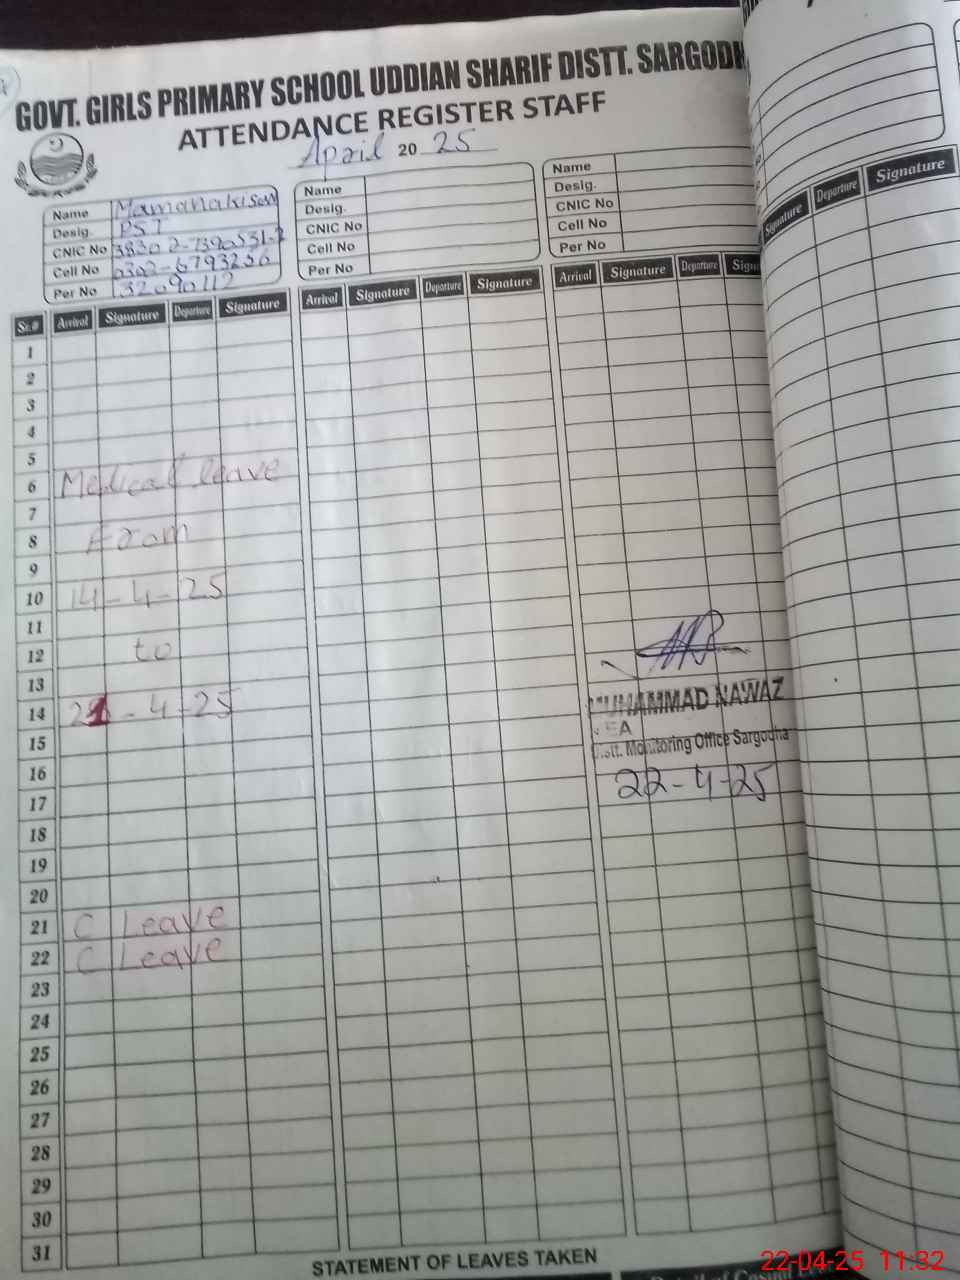 GOVT. GIRLS PRIMARY SCHOOL UDDIAN SHARIF DISTT. SARGODH
ATTENDANCE REGISTER STAFF
April 2025
Name
Desig. PST
CNIC No 38302-7390531-
Cell No 0302-6793236
Per No 32090112
Name
Desig.
CNIC No
Cell No
Per No
Name
Desig.
CNIC No
Cell No
Per No
Signature Departure Signature
Sr.# Arrival Signature Departure Signature Arrival Signature Departure Signature Arrival Signature Departure Sign
1
2
3
4
5
6 Medical leave
7
8 From
9
10 14-4-25
11
12 to
13
14 21-4-25
MUHAMMAD NAWAZ
EA
Distt. Monitoring Office Sargodha
22-4-25
15
16
17
18
19
20
21 C Leave
22 C Leave
23
24
25
26
27
28
29
30
31
STATEMENT OF LEAVES TAKEN
22-04-25 11:32